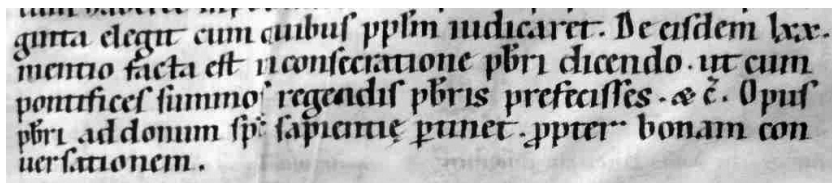 ginta elegit cum quibuſ ppłm iudicaret. De eiſdem lxx.
mentio facta eſt iı conſecratione pƀri dicendo. ut cum
pontificeſ ſummoſ regendis pƀris prefeciſſes. & c̃. Opus
pƀri ad donum ſp̅c ſapientię ꝑtinet. ꝓpter bonam con
uerſationem.